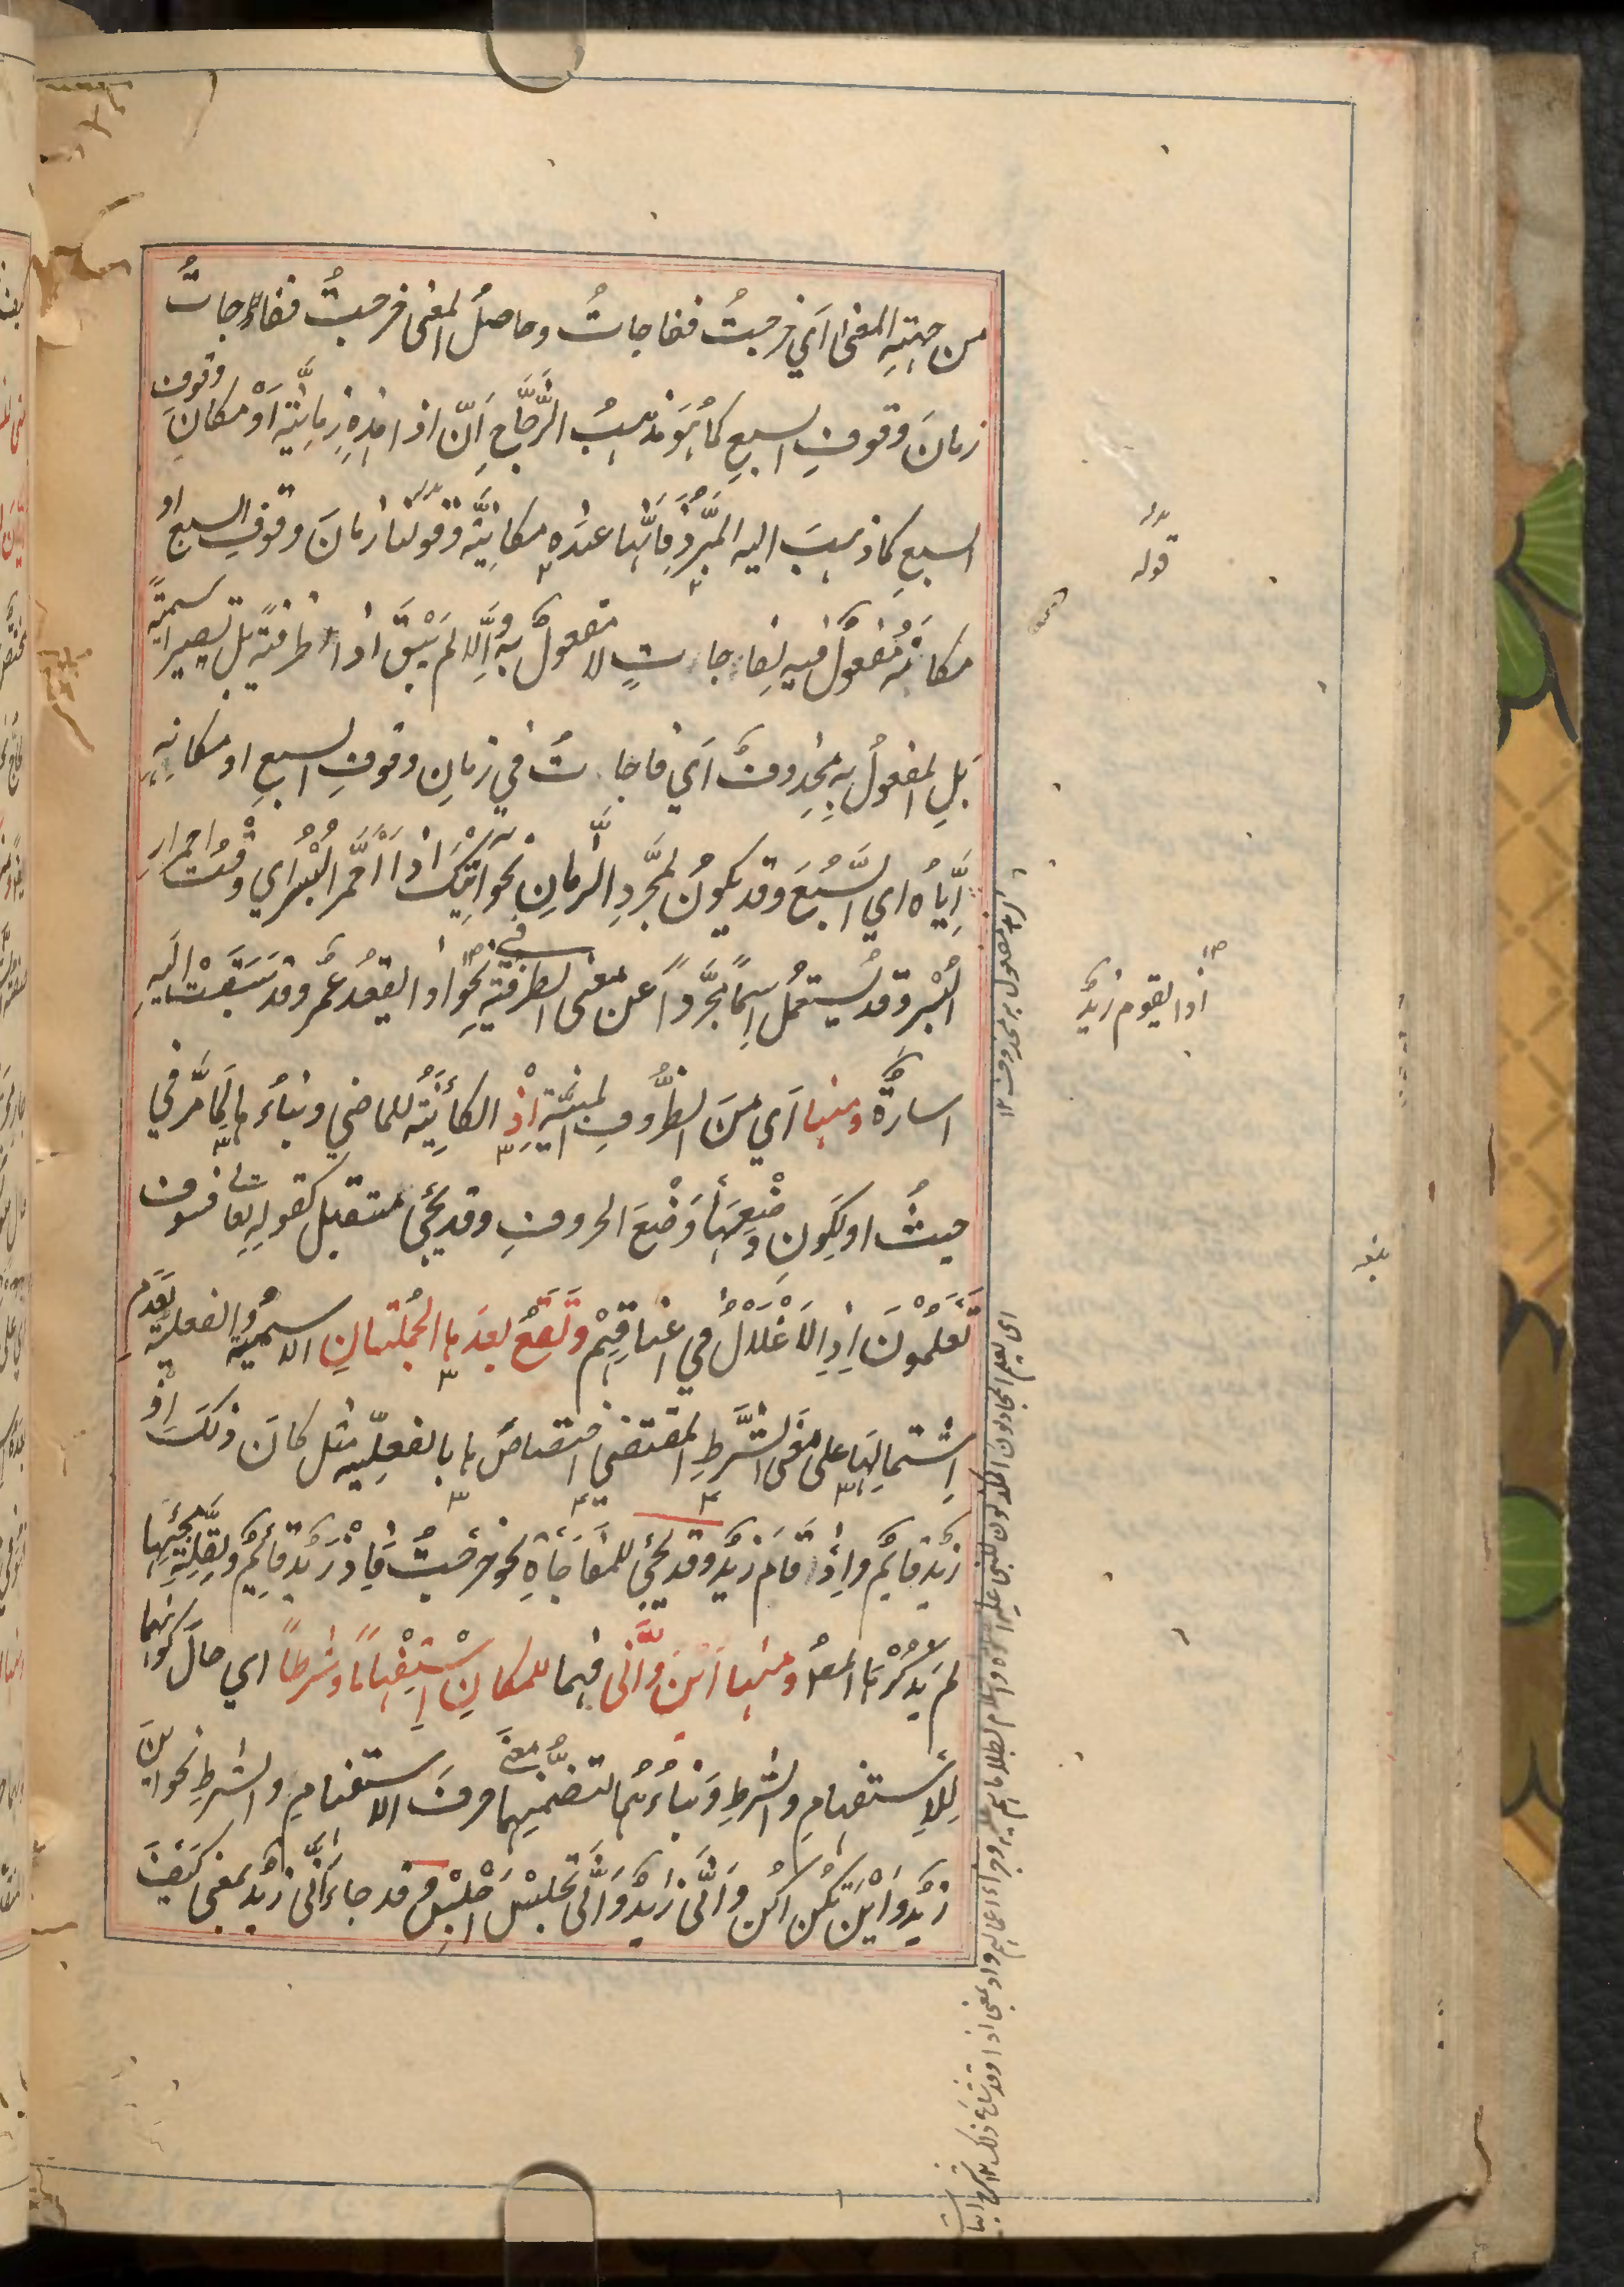 من جهتِه المعنى اَي خرجتُ ففاجاتُ وحاصلُ المعنى خرجتُ ففاجاتُ
زمانَ وقوفِ السبعِ كما هُوَ مذهبُ الزَّجّاجِ اَنّ اذا هذِه زمانيّة اَوْ مكانَ وقوف
السبعِ كما ذهبَ اليه المبرّدُ فانّها عندَه مكانيّة وقولنا زمانَ وقوفِ السبع او
مكانه مفعولٌ فيه لفاجاءتِ لا مفعولٌ به واِلّا لم يَبْقَ اذا ظرفية بل تصير اسميّة
بَلِ المفعولُ به محذوفٌ اَي فاجاءتُ في زمانِ وقوفِ السبعِ او مكانِه
اِيّاه اي السَّبُعَ وقد يكونُ لمجرّدِ الزّمانِ نحو اتيتك اذا احْمَرَّ البُسْر اي وقتَ احمرارِ
البُسْر وقد يُستعمل اِسمًا مجرّدًا عن معنى الظرفيّةِ في نحو اذا يقعُد عمرٌو وقد سَبَقَتْ اليهِ
اشارةٌ ومنها اَي مِنَ الظّروفِ المبنيّةِ اِذْ الكائنةُ للماضي وبناءُ ها لِمَا مرَّ في
حيثُ او لِكَونِ وَضْعِها وَضْعَ الحروفِ وقد يجئ لمستقبل كقولِه تعا فسوف
تَعلمُونَ اِذِ الاَغْلَالُ في اَعْنَاقِهِمْ وتَقَعُ بعدَ ها الجُملتانِ الاسميّةُ والفعليّة لعَدَمِ
اِشتمالِها على معنَى الشّرطِ المقتضي اختصاصَ ها بالفعليّه مثل كانَ ذلكَ اِذْ
زيدٌ قايمٌ واِذْ قامَ زيدٌ وقد يجئ للمفاجَأةِ نحو خرجتُ فاِذْ زيدٌ قايمٌ ولِقلّةِ مجيئها
لم يَذكُرْها المصـ ومنها اَيْنَ واَنّى فهما للمكانِ اِسْتِفْهامًا وشرطًا اي حال كونهما
للاِستفهامِ والشرطِ وبناءُهُما لتضمّنِهما معنى حرفَ الاستفهامِ والشرطِ نحو اين
زيدٌ واَيْنَ تكُن اكُن واَنّى زيدٌ واَنّى تجلِسْ اَجْلِسْ وقد جاءَ اَنّى زيدٌ بمعنى كَيْفَ
قوله
اذا يقوم زيدٌ